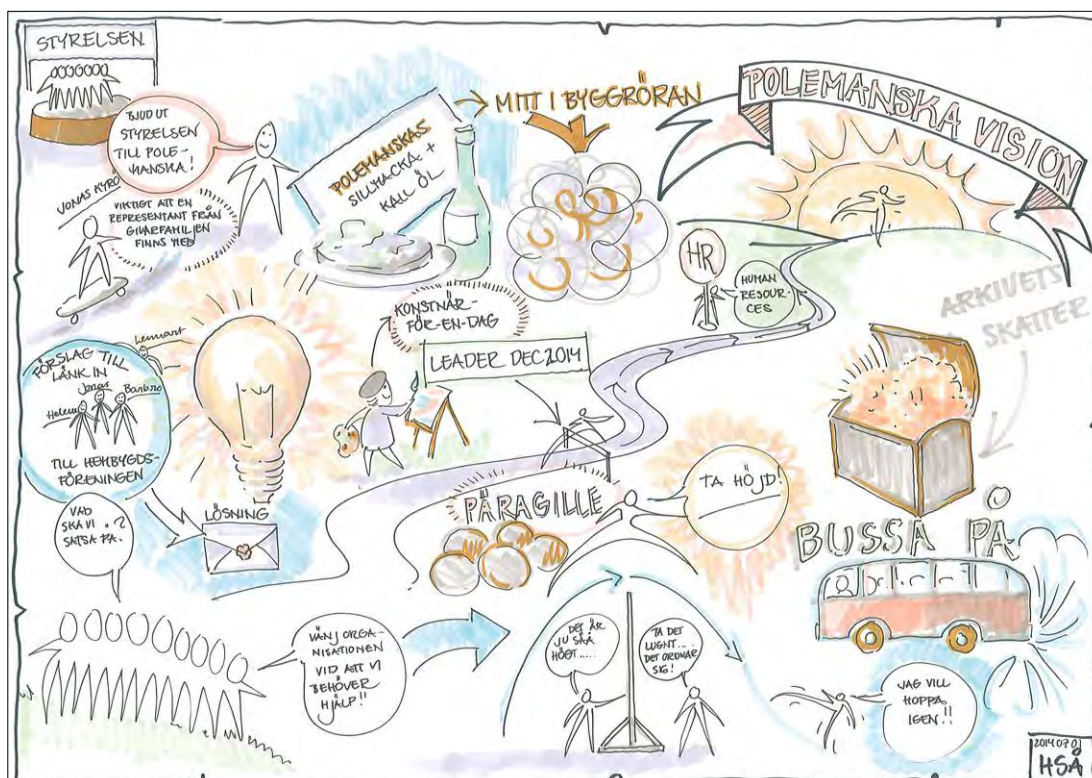 STYRELSEN
BJUD UT
STYRELSEN
TILL POLE-
MANSKA!
JONAS KYRÖ
VIKTIGT ATT EN
REPRESENTANT FRÅN
GIVARFAMILJEN
FINNS MED
POLEMANSKAS
SILLMACKA +
KALL ÖL
MITT I BYGGRÖRAN
POLEMANSKA VISION
HR
HUMAN
RESOUR-
CES
ARKIVETS
SKATTER
KONSTNÄR-
FÖR-EN-DAG
LEADER DEC 2014
Lennart
FÖRSLAG TILL
LÄNK IN
Jonas
Helena
Barbro
TILL HEMBYGDS-
FÖRENINGEN
LÖSNING
VAD
SKA VI
SATSA PÅ.
?
PÄRAGILLE
TA HÖJD!
BUSSA PÅ
VÄNJ ORGA-
NISATIONEN
VID ATT VI
BEHÖVER
HJÄLP!!
DET ÄR
JU SÅÅ
HÖGT.....
TA DET
LUGNT...
DET ORDNAR
SIG!
JAG VILL
HOPPA
IGEN!!
HSÅ